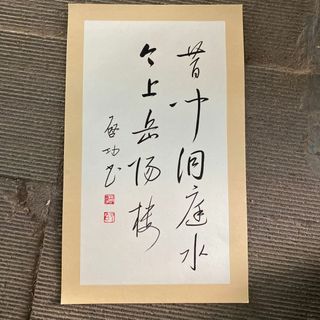 昔闻洞庭水
今上岳阳楼
启功书